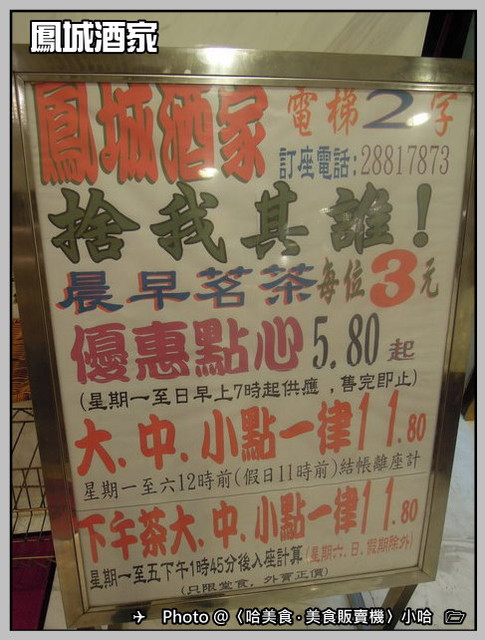 鳳城酒家
鳳城酒家 電梯2字
訂座電話:28817873
捨我其誰!
晨早茗茶每位3元
優惠點心5.80起
(星期一至日早上7時起供應,售完即止)
大.中.小點一律11.80
星期一至六12時前(假日11時前)結帳離座計
下午茶大.中.小點一律11.80
星期一至五下午1時45分後入座計算(星期六.日.假期除外)
(只限堂食,外賣正價)
Photo @〈哈美食‧美食販賣機〉小哈